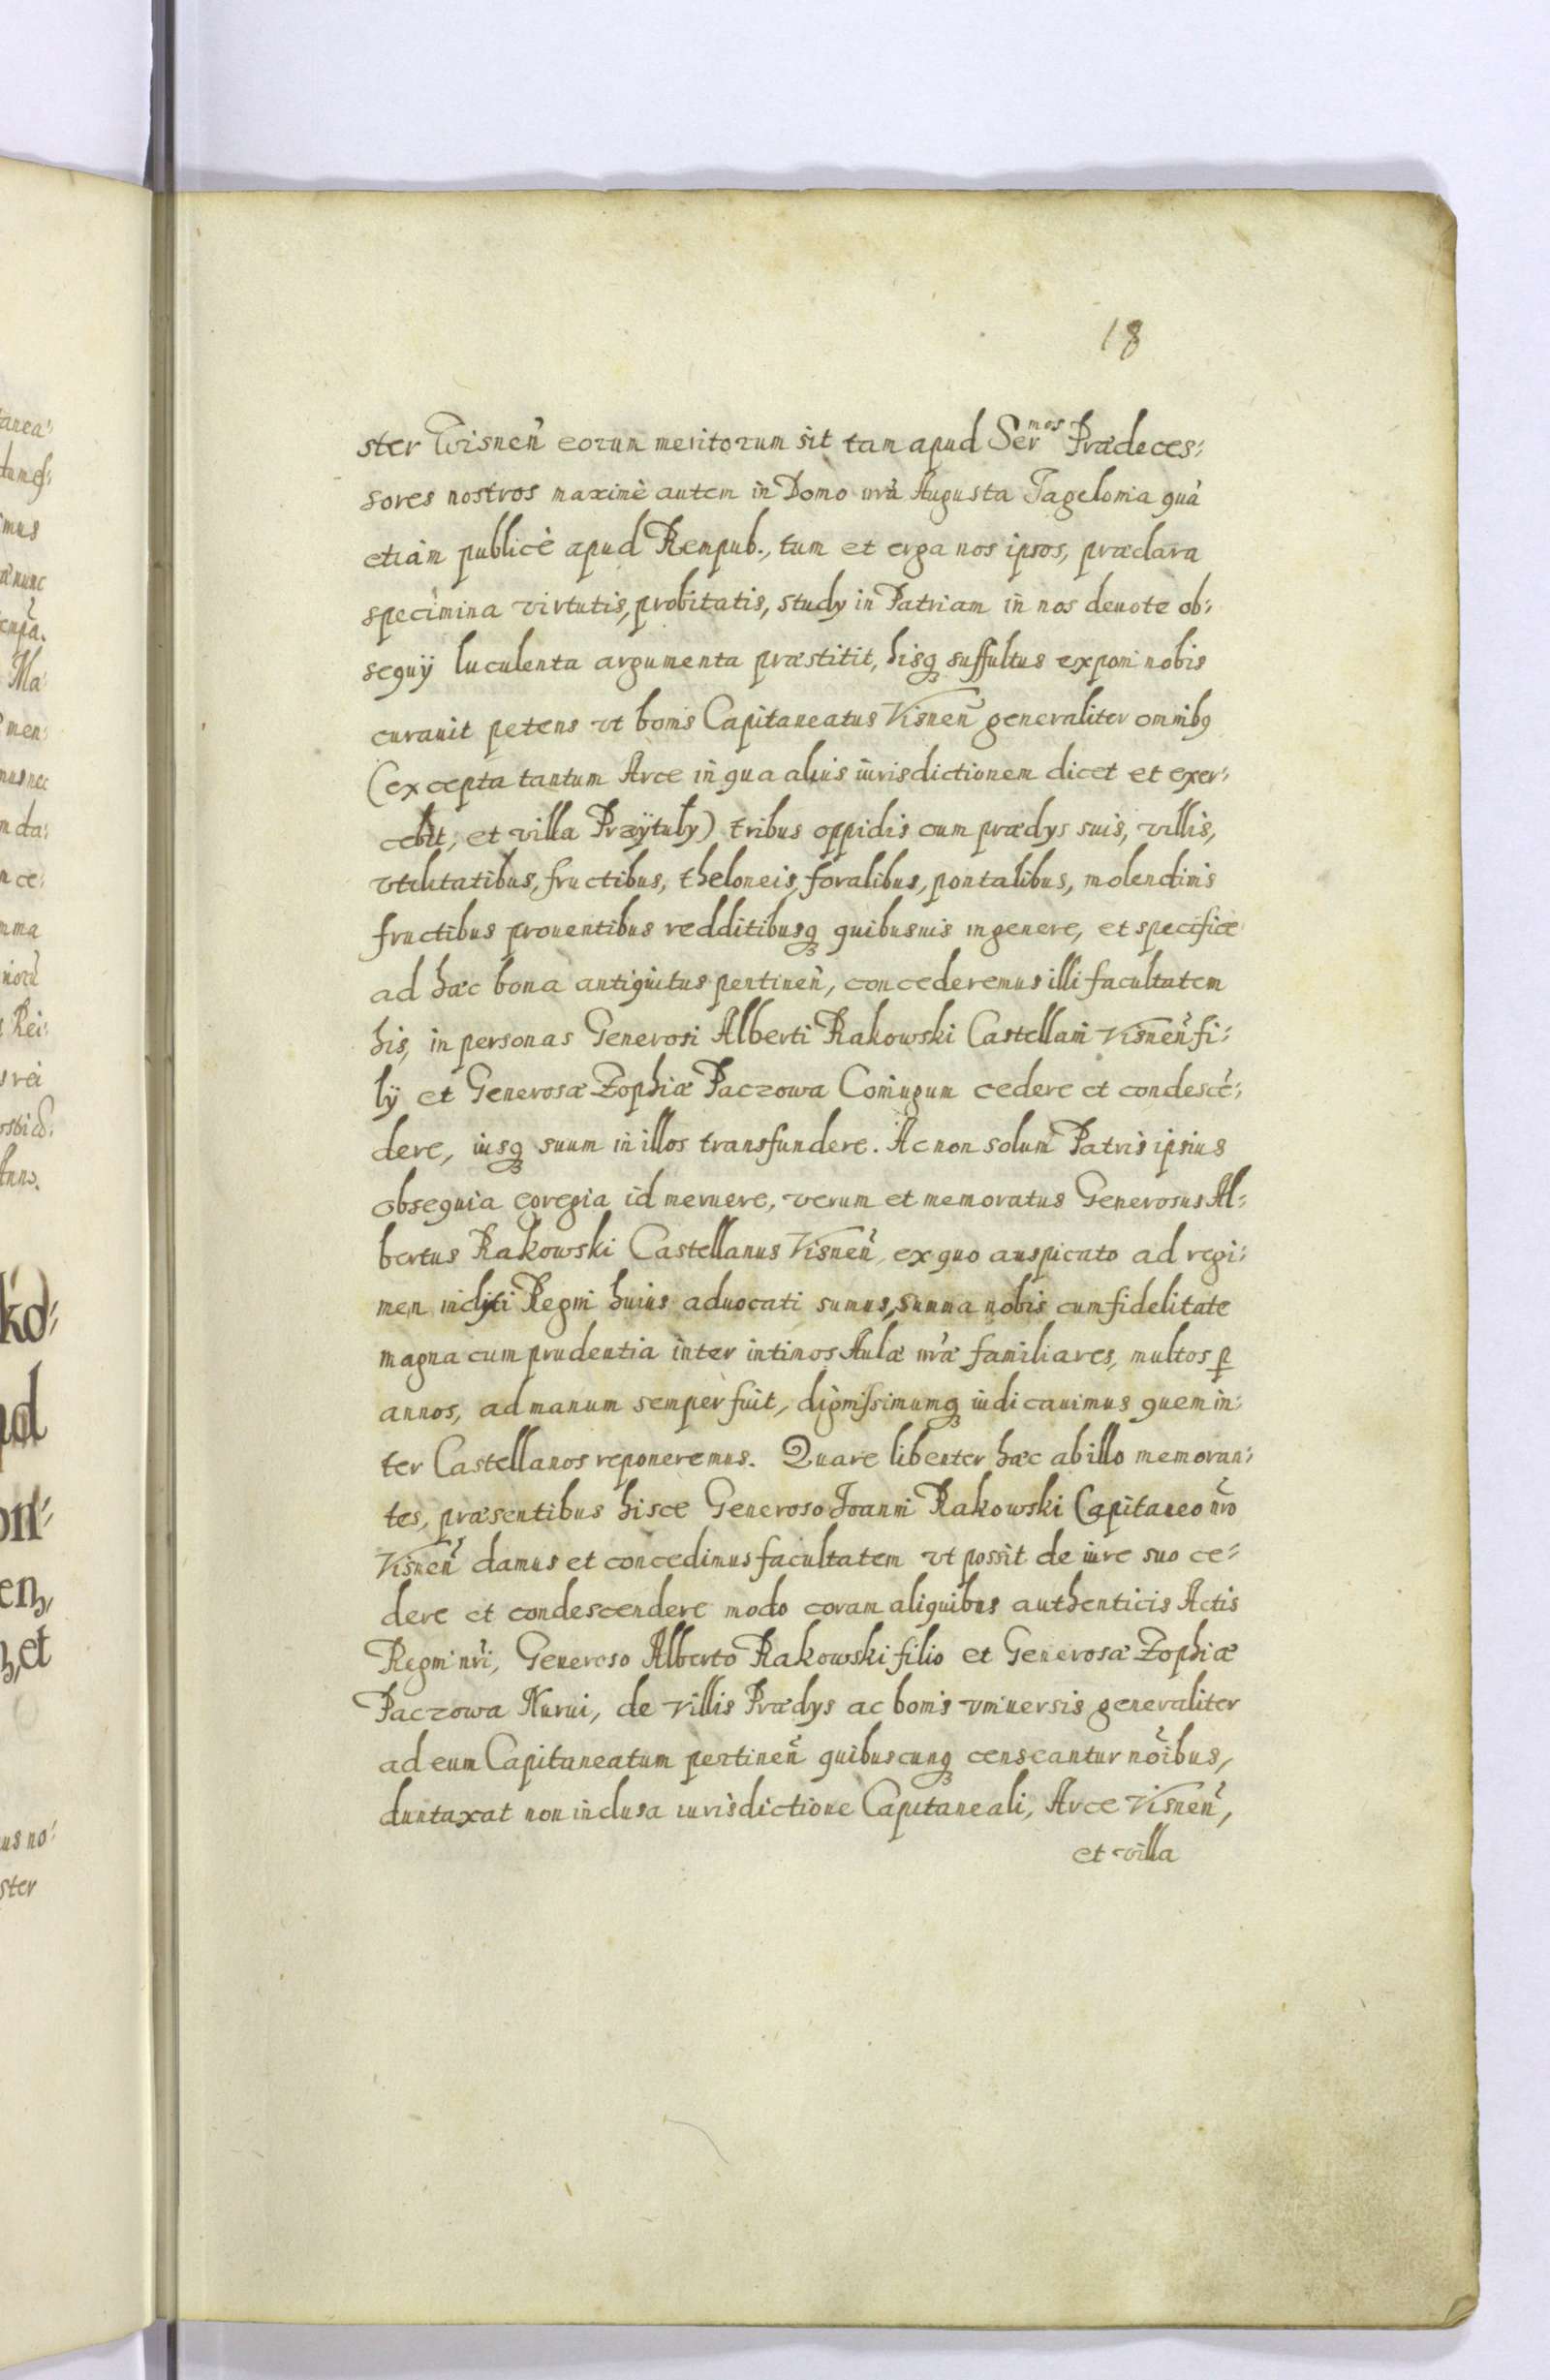 18
ster Wisneñ eorum meritorum sit tam apud Ser^mos Prædeces:
sores nostros maximè autem in Domo nrà Augusta Jagelonia quà
etiàm publicè apud Rempub., tum et erga nos ipsos, præclara
specimina virtutis, probitatis, study in Patriam in nos deuote ob:
sequÿ luculenta argumenta præstitit, hisq́ suffultus exponi nobis
curauit petens vt bonis Capitaneatus Visneñ generaliter omnibq
(excepta tantum Arce in qua alius iurisdictionem dicet et exer:
cebit, et villa Przÿtuły) tribus oppidis cum prædys suis, villis,
vtilitatibus, fructibus, theloneis, foralibus, pontalibus, molendinis
fructibus prouentibus redditibusq́ quibusuis in genere, et specifice
ad hæc bona antiquitus pertineñ, concederemus illi facultatem
his, in personas Generosi Alberti Rakowski Castellani Visneñ fi:
lÿ et Generosæ Zophiæ Paczowa Coniugum cedere et condescē:
dere, iusq́ suum in illos transfundere. Ac non solum Patris ipsius
obsequia egregia id meruere, verum et memoratus Generosus Al:
bertus Rakowski Castellanus Visneñ, ex quo auspicato ad regi:
men inclyti Regni huius aduocati sumus, summa nobis cum fidelitate
magna cum prudentia inter intimos Aulæ nræ familiares, multos ꝑ
annos, ad manum semper fuit, dignissimumq́ iudicauimus quem in:
ter Castellanos reponeremus. Quare libenter hæc ab illo memoran:
tes, præsentibus hisce Generoso Joanni Rakowski Capitaneo nr̃o
Visneñ damus et concedimus facultatem vt possit de iure suo ce:
dere et condescendere modo coram aliquibus authenticis Actis
Regni nr̃i, Generoso Alberto Rakowski filio et Generosæ Zophiæ
Paczowa Nurui, de villis Prædys ac bonis vniuersis generaliter
ad eum Capitaneatum pertineñ quibuscunq́ censeantur nõibus,
duntaxat non inclusa iurisdictione Capitaneali, Arce Visneñ,
et villa